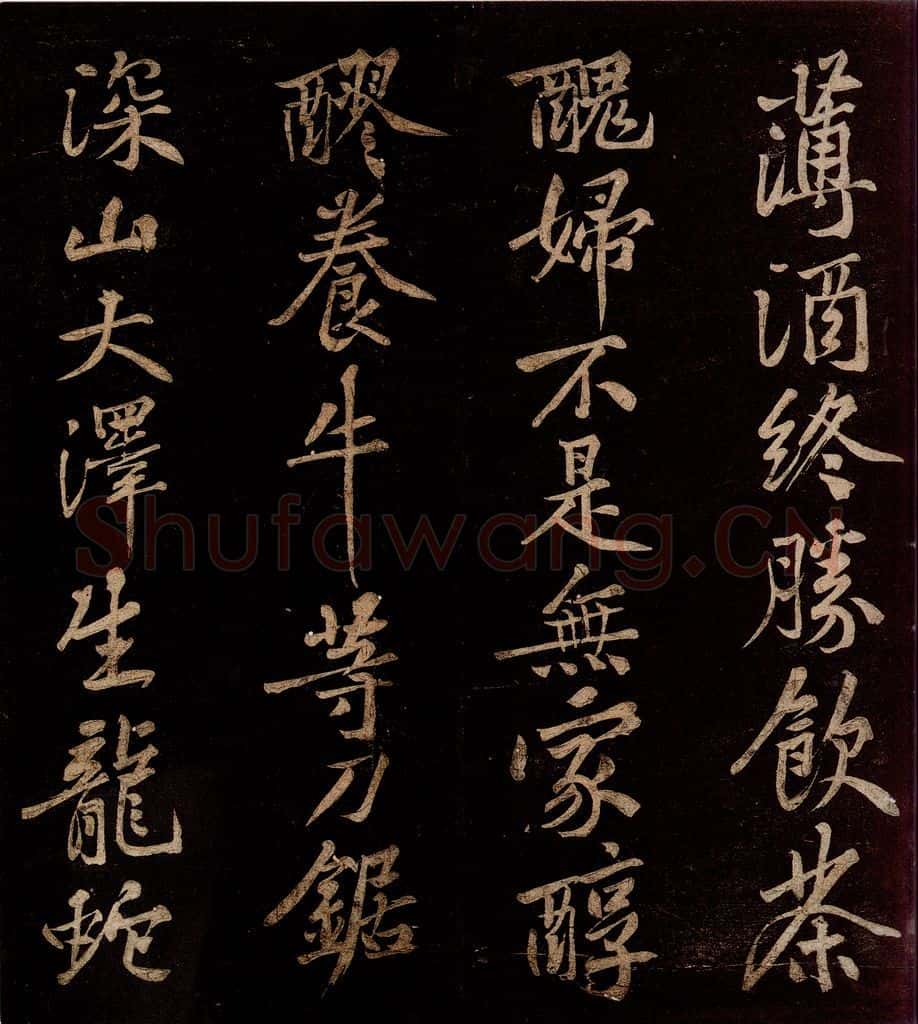 薄酒終勝飲茶
醜婦不是無家醇
醪養牛等刀鋸
深山大澤生龍蛇
Shufawang.CN